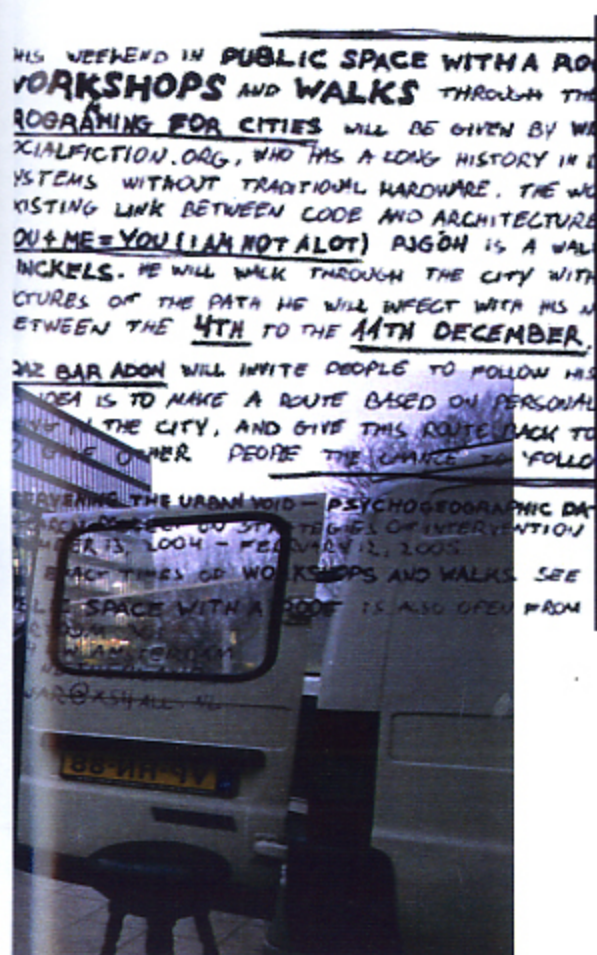 HIS WEEKEND IN PUBLIC SPACE WITH A RO
WORKSHOPS AND WALKS THROUGH TH
ROGRAMING FOR CITIES WILL BE GIVEN BY W
OCIALFICTION.ORG, WHO HAS A LONG HISTORY IN
YSTEMS WITHOUT TRADITIONAL HARDWARE. THE WO
XISTING LINK BETWEEN CODE AND ARCHITECTURE
OU + ME = YOU (I AM NOT A LOT) IS A WAL
INCKELS. HE WILL WALK THROUGH THE CITY WITH
CTURES OF THE PATH HE WILL INFECT WITH HIS
ETWEEN THE 4TH TO THE 11TH DECEMBER.
BAR ADON WILL INVITE PEOPLE TO FOLLOW HIS
IDEA IS TO MAKE A ROUTE BASED ON PERSONAL
IN THE CITY, AND GIVE THIS ROUTE BACK TO
GIVE OTHER PEOPLE THE CHANCE TO 'FOLLO
THE URBAN VOID - PSYCHOGEOGRAPHIC DA
ON STRATEGIES OF INTERVENTION
BER 13, 2004 - FEBRUARY 12, 2005
EXACT TIMES OF WORKSHOPS AND WALKS SEE
LIC SPACE WITH A ROOF IS ALSO OPEN FROM
AMSTERDAM
@XS4ALL.NL